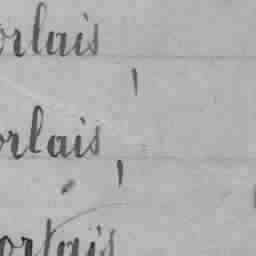 orlais
orlais
ortais